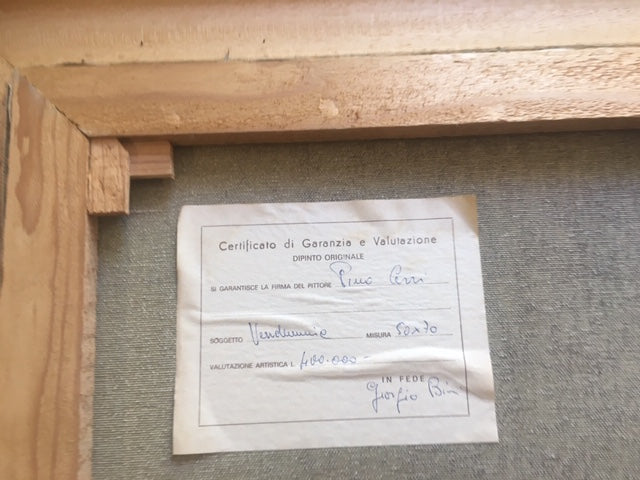 Certificato di Garanzia e Valutazione
DIPINTO ORIGINALE
SI GARANTISCE LA FIRMA DEL PITTORE Pino Cerri
SOGGETTO Vendemmia MISURA 50x70
VALUTAZIONE ARTISTICA L. 400.000-
IN FEDE
Giorgio Bini